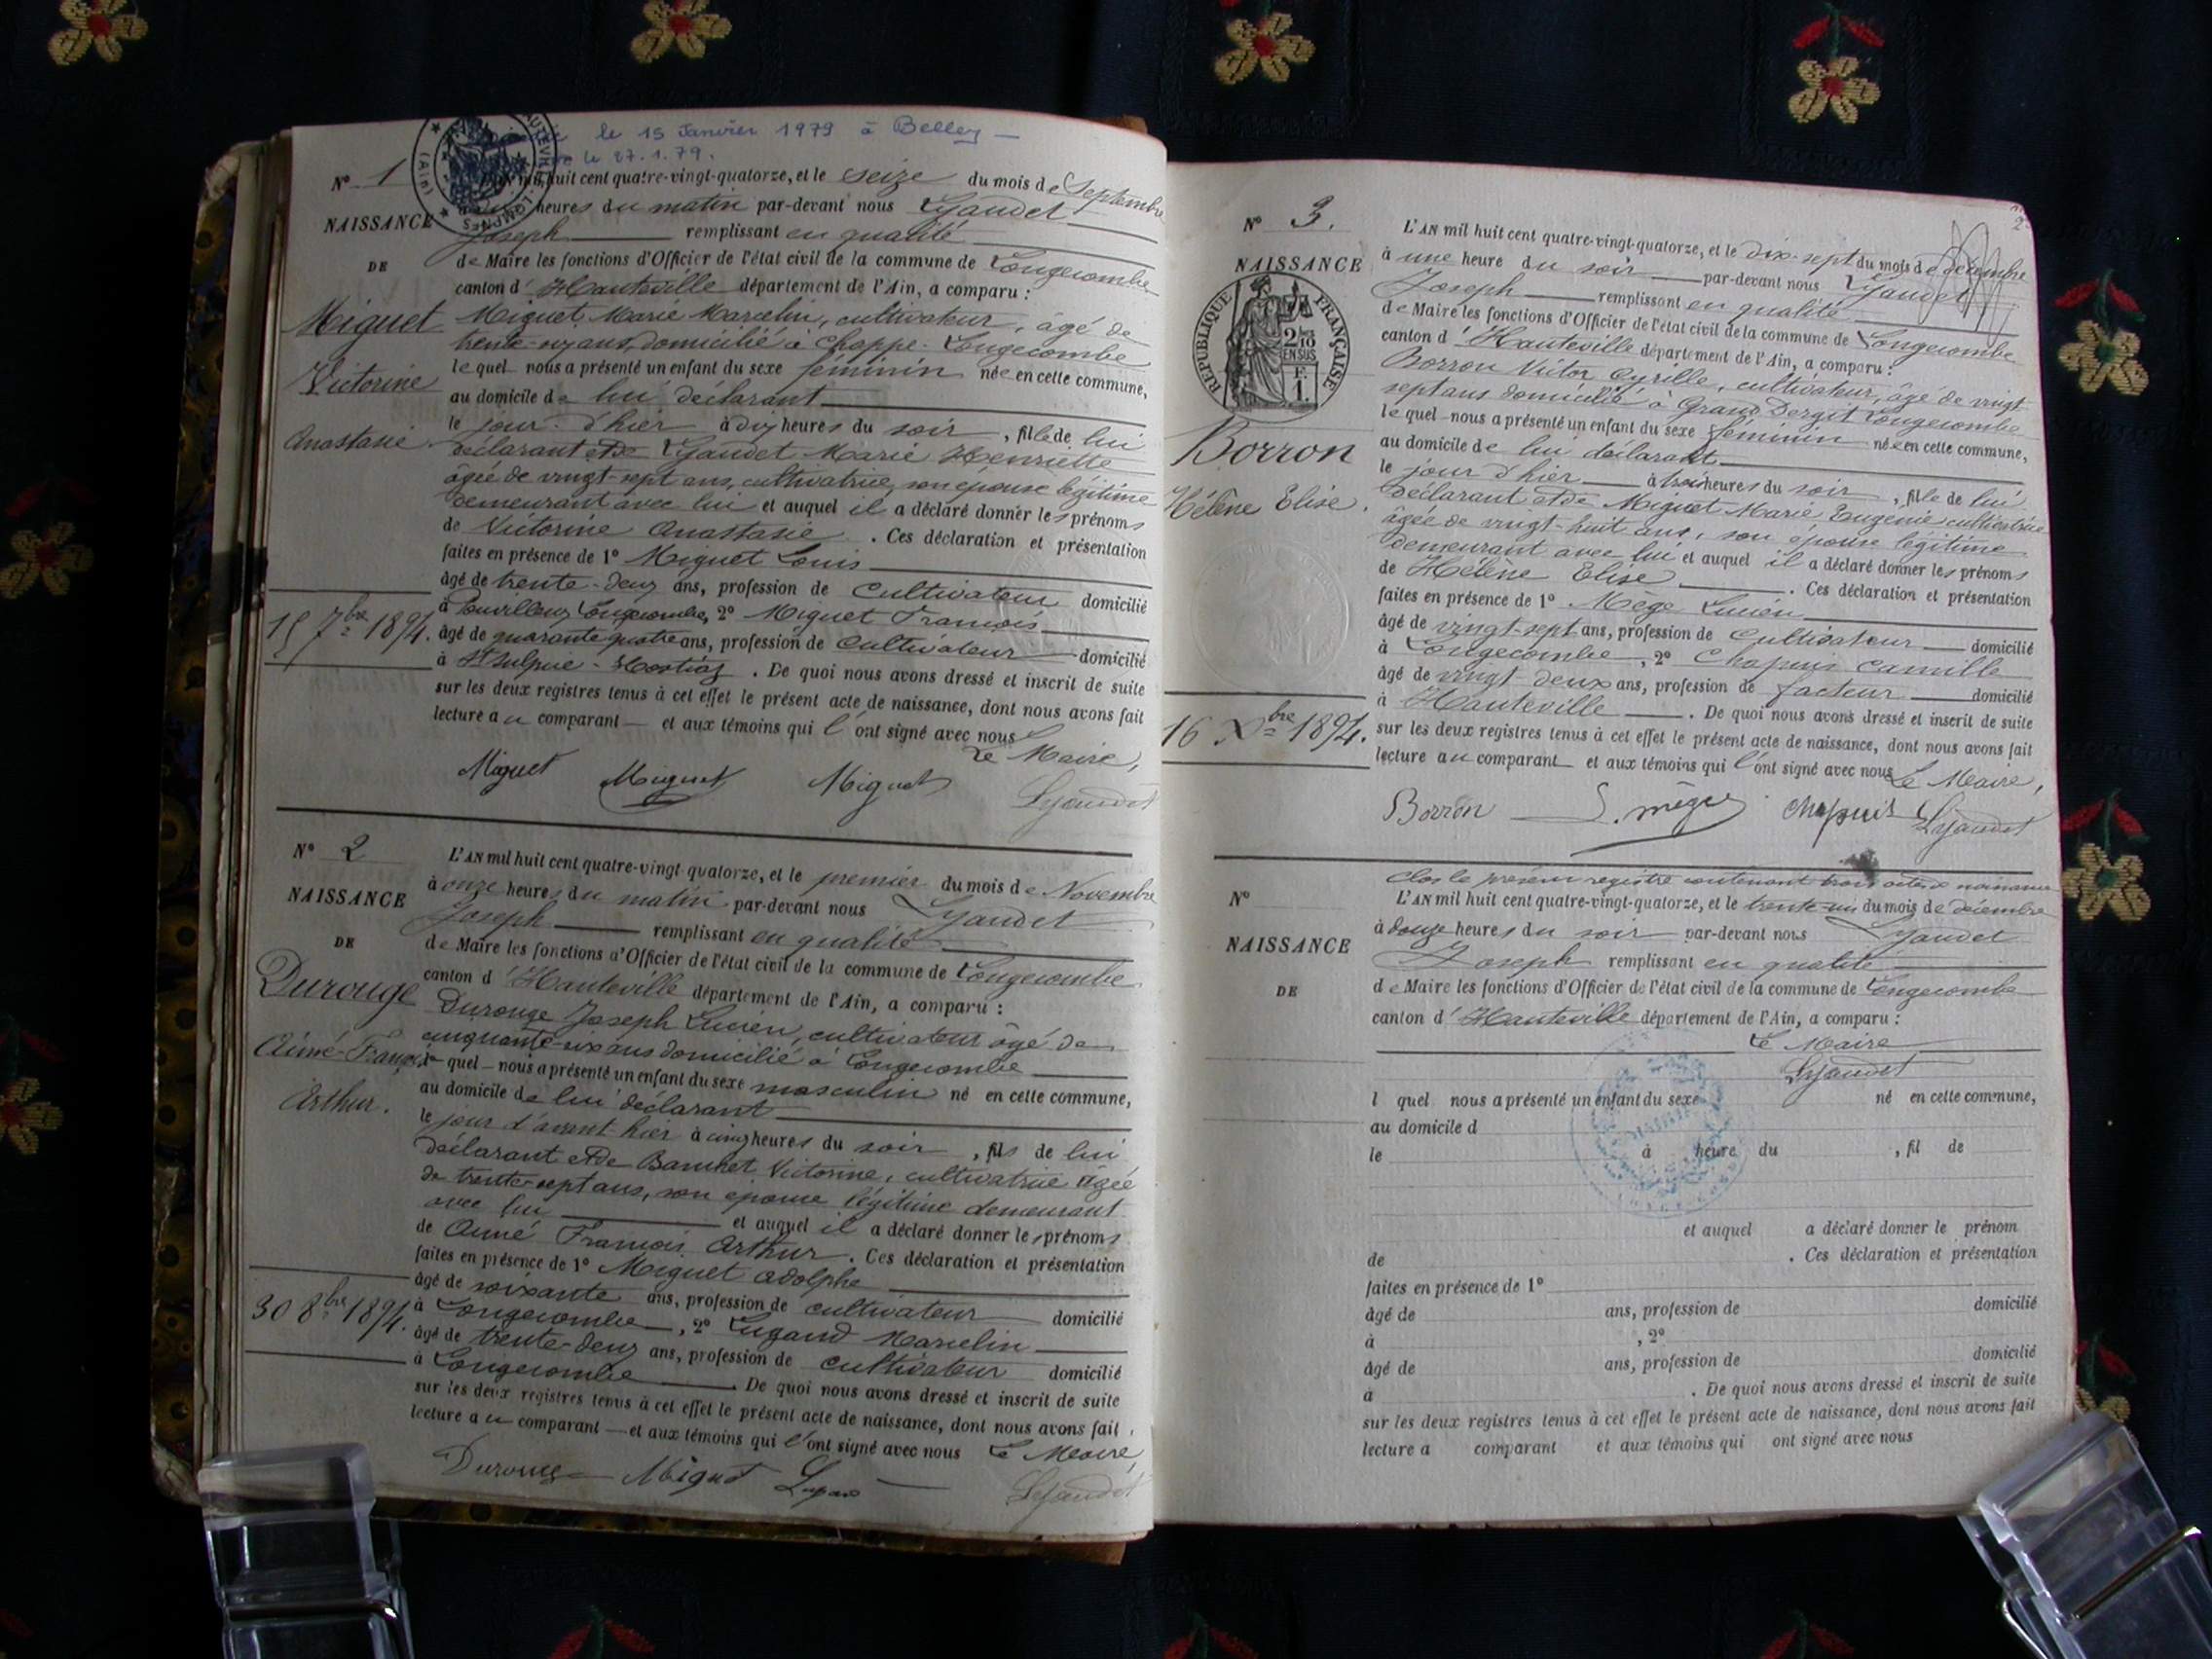 le 15 Janvier 1979 à Belley —
le 27.1.79.
N° 1
NAISSANCE
DE
Miguet
Victorine
Anastasie.
15 7bre 1894.
mil huit cent quatre-vingt-quatorze, et le seize du mois de Septembre
heures du matin par-devant nous Lyaudet
Joseph remplissant en qualité
de Maire les fonctions d'Officier de l'état civil de la commune de Longecombe
canton d'Hauteville département de l'Ain, a comparu :
Miguet Marie Marcelin, cultivateur, âgé de
trente-six ans, domicilié à Chappe-Longecombe
lequel nous a présenté un enfant du sexe féminin née en cette commune,
au domicile de lui déclarant
le jour d'hier à dix heures du soir, fille de lui
déclarant et de Lyaudet Marie Henriette
âgée de vingt-sept ans, cultivatrice, son épouse légitime
demeurant avec lui et auquel il a déclaré donner les prénoms
de Victorine Anastasie. Ces déclaration et présentation
faites en présence de 1° Miguet Louis
âgé de trente-deux ans, profession de cultivateur domicilié
à Longecombe, 2° Miguet François
âgé de quarante quatre ans, profession de cultivateur domicilié
à St Sulpice-Hostiaz. De quoi nous avons dressé et inscrit de suite
sur les deux registres tenus à cet effet le présent acte de naissance, dont nous avons fait
lecture au comparant et aux témoins qui l'ont signé avec nous
Le Maire,
Miguet Miguet Miguet Lyaudet
N° 2
NAISSANCE
DE
Durouge
Aimé-François
Arthur.
30 8bre 1894.
L'AN mil huit cent quatre-vingt quatorze, et le premier du mois de Novembre
à onze heures du matin par-devant nous Lyaudet
Joseph remplissant en qualité
de Maire les fonctions d'Officier de l'état civil de la commune de Longecombe
canton d'Hauteville département de l'Ain, a comparu :
Durouge Joseph Lucien, cultivateur âgé de
cinquante-six ans domicilié à Longecombe
lequel nous a présenté un enfant du sexe masculin né en cette commune,
au domicile de lui déclarant
le jour d'avant hier à cinq heures du soir, fils de lui
déclarant et de Victorine, cultivatrice âgée
de trente-sept ans, son épouse légitime demeurant
avec lui et auquel il a déclaré donner les prénoms
de Aimé François Arthur. Ces déclaration et présentation
faites en présence de 1° Miguet Adolphe
âgé de soixante ans, profession de cultivateur domicilié
à Longecombe, 2° Lugand Marcelin
âgé de trente-deux ans, profession de cultivateur domicilié
à Longecombe. De quoi nous avons dressé et inscrit de suite
sur les deux registres tenus à cet effet le présent acte de naissance, dont nous avons fait
lecture au comparant — et aux témoins qui l'ont signé avec nous Le Maire,
Durouge Miguet Lugand Lyaudet
2
N° 3.
NAISSANCE
REPUBLIQUE FRANÇAISE
2/10 EN SUS
F. 1.
Borron
Hélène Elise.
16 Xbre 1894.
L'AN mil huit cent quatre-vingt-quatorze, et le dix-sept du mois de décembre
à une heure du soir par-devant nous Lyaudet
Joseph remplissant en qualité
de Maire les fonctions d'Officier de l'état civil de la commune de Longecombe
canton d'Hauteville département de l'Ain, a comparu :
Borron Victor Cyrille, cultivateur, âgé de vingt
sept ans domicilié à Grand Dergit Longecombe
lequel nous a présenté un enfant du sexe féminin née en cette commune,
au domicile de lui déclarant
le jour d'hier à trois heures du soir, fille de lui
déclarant et de Miguet Marie Eugénie cultivatrice
âgée de vingt-huit ans, son épouse légitime
demeurant avec lui et auquel il a déclaré donner les prénoms
de Hélène Elise. Ces déclaration et présentation
faites en présence de 1° Mège Lucien
âgé de vingt-sept ans, profession de cultivateur domicilié
à Longecombe, 2° Chapuis Camille
âgé de vingt deux ans, profession de facteur domicilié
à Hauteville. De quoi nous avons dressé et inscrit de suite
sur les deux registres tenus à cet effet le présent acte de naissance, dont nous avons fait
lecture au comparant et aux témoins qui l'ont signé avec nous Le Maire,
Borron L. mège Chapuis Lyaudet
Clos le présent registre contenant trois actes de naissance
N°
NAISSANCE
DE
L'AN mil huit cent quatre-vingt-quatorze, et le trente-un du mois de décembre
à douze heures du soir par-devant nous Lyaudet
Joseph remplissant en qualité
de Maire les fonctions d'Officier de l'état civil de la commune de Longecombe
canton d'Hauteville département de l'Ain, a comparu :
Le Maire
Lyaudet
l quel nous a présenté un enfant du sexe né en cette commune,
au domicile d
le à heure du , fil de
et auquel a déclaré donner le prénom
de . Ces déclaration et présentation
faites en présence de 1°
âgé de ans, profession de domicilié
à , 2°
âgé de ans, profession de domicilié
à . De quoi nous avons dressé et inscrit de suite
sur les deux registres tenus à cet effet le présent acte de naissance, dont nous avons fait
lecture a comparant et aux témoins qui ont signé avec nous